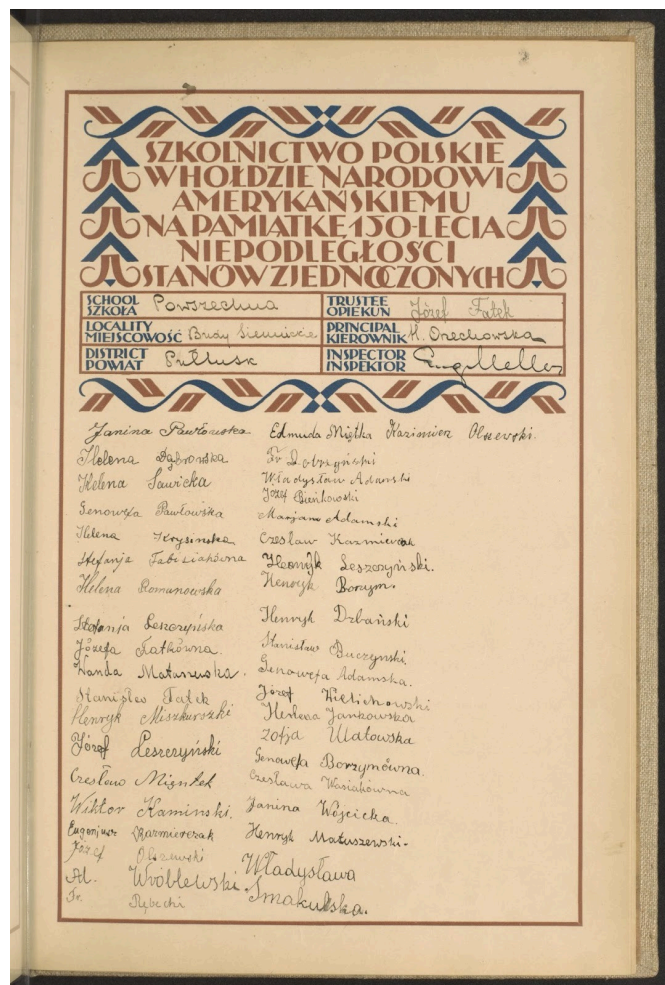 SZKOLNICTWO POLSKIE
W HOŁDZIE NARODOWI
AMERYKAŃSKIEMU
NA PAMIĄTKĘ 150-LECIA
NIEPODLEGŁOŚCI
STANÓW ZJEDNOCZONYCH
SCHOOL
SZKOŁA Powszechna
TRUSTEE
OPIEKUN Józef Fatek
LOCALITY
MIEJSCOWOŚĆ Budy
PRINCIPAL
KIEROWNIK H. Orzechowska
DISTRICT
POWIAT Pułtusk
INSPECTOR
INSPEKTOR
Janina Pawłowska
Helena Dąbrowska
Helena Sawicka
Genowefa Pawłowska
Helena Krysinska
Stefanja Fabisiakówna
Helena Romanowska
Stefanja Leszczyńska
Józefa Fatkówna.
Wanda Matuszewska.
Stanisłw Fatek
Henryk Miszkurszki
Józef Leszczyński
Czesław Miętek
Wiktor Kaminski.
Eugenjusz Kazmierczak
Józef Olszewski
Ad. Wróblewski
Fr. Rębecki
Edmuda Miętka Kazimierz Olszewski.
Fr
Władysław Adamski
Józef Bieńkowski
Marjann Adamski
Czesław Kazmierczak
Henryk Leszczyński.
Henryk Borzym.
Henryk Drbański
Stanisław Buczynski
Genowefa Adamska.
Józef Kielichowski
Helena Jankowska
Zofja Ulatowska
Genowefa Borzymówna.
Czesława Wasiakówna
Janina Wójcicka.
Henryk Matuszewski-
Władysława
Smakulska.